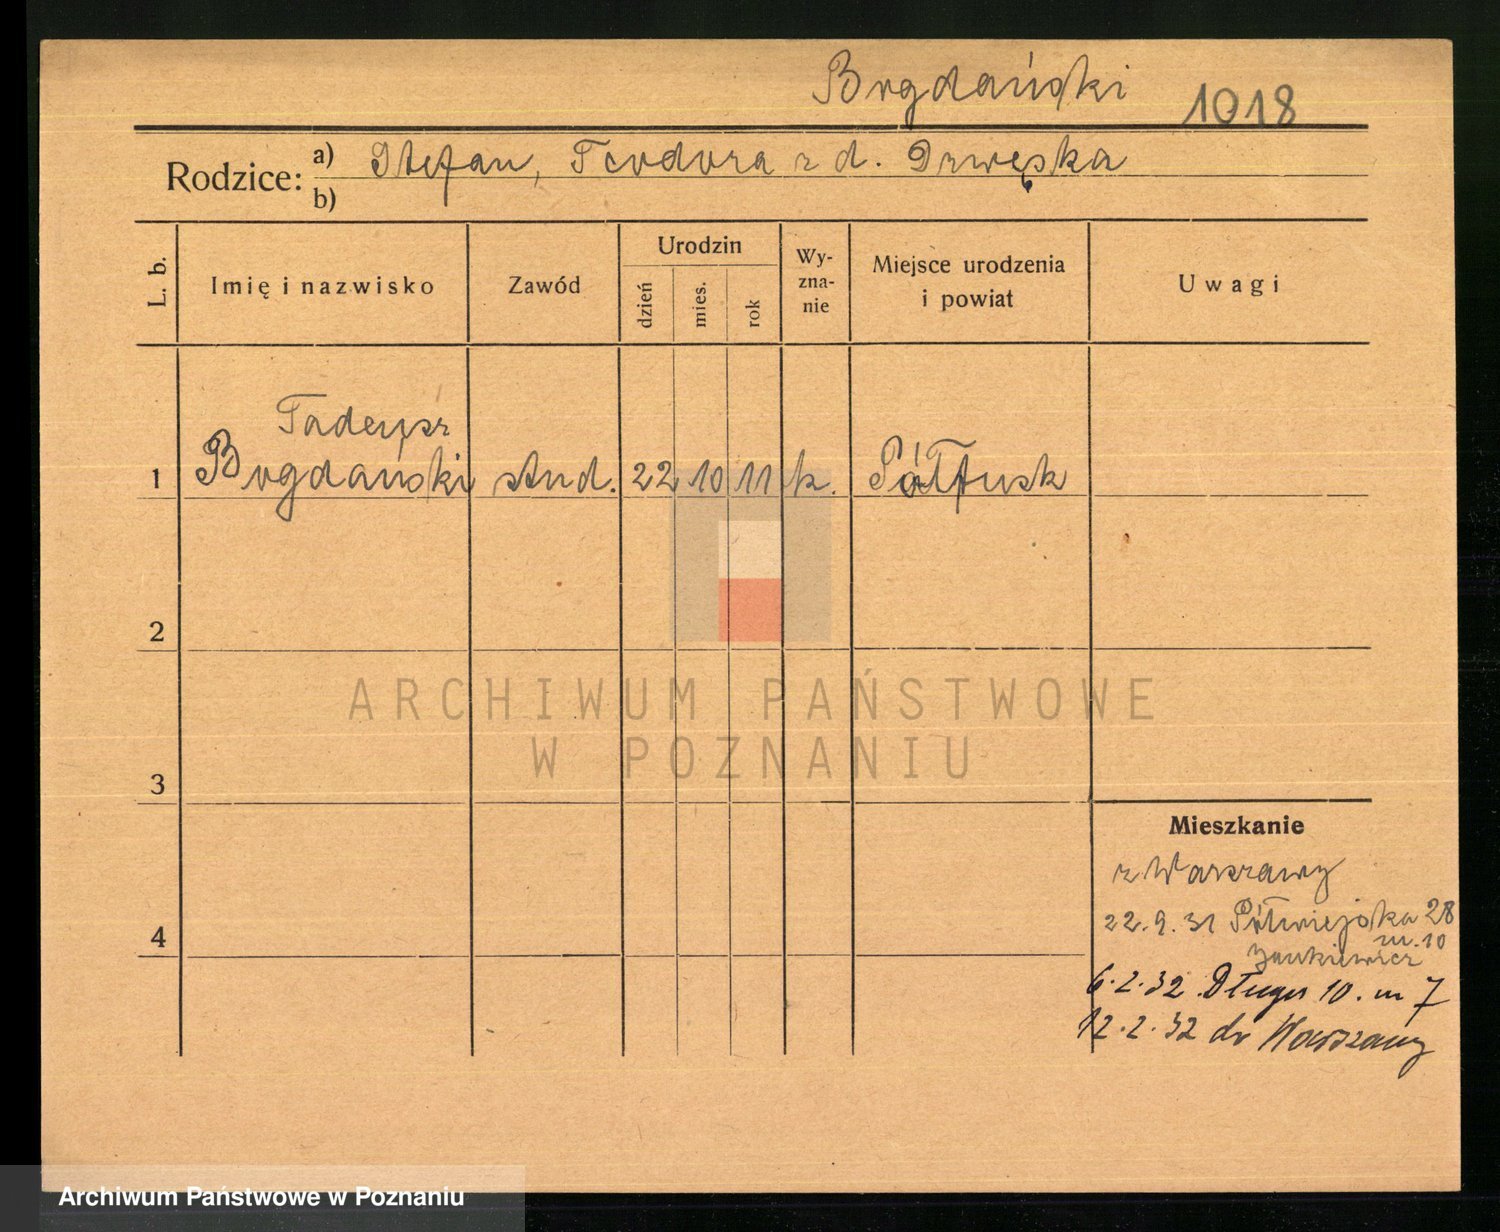 Bogdański 1018
Rodzice: a) Stefan, Teodora z d. Drwęska
b)
L. b. Imię i nazwisko Zawód Urodzin dzień mies. rok Wy-zna-nie Miejsce urodzenia i powiat Uwagi
Tadeusz
1 Bogdański stud. 22 10 11 k. Półtusk
2
ARCHIWUM PAŃSTWOWE
W POZNANIU
3
Mieszkanie
z Warszawy
22.9.31 Półwiejska 28
m. 10
4
6.2.32 Długa 10. m 7
12.2.32 do Warszawy
Archiwum Państwowe w Poznaniu